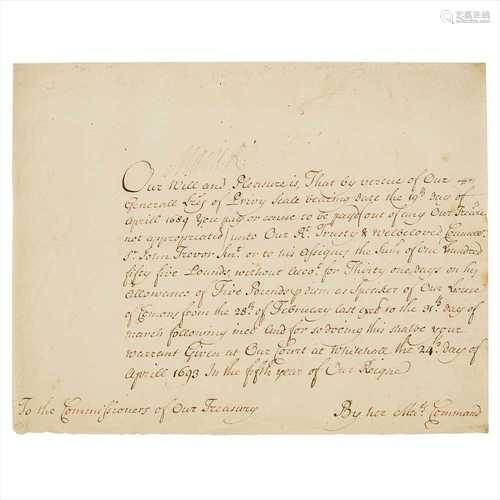 Marie R
Our Will and Pleasure is, That by vertue of Our
Generall Lres of Privy Seale bearing date the 19th day of
Aprill 1689 You pay or cause to be payd out of any Our Treasure
not appropriated unto Our Rt. Trusty & Welbeloved Councr.
Sr. John Trevor Knt. or to his Assignes the Sum of One hundred
fifty five Pounds, without Accot. for Thirty one days on his
Allowance of Five Pounds p diem as Speaker of Our House
of Comons from the 28th. of February last exclu to the 31th. day of
March following incl. And for so doeing this shalbe your
Warrant Given at Our Court at Whitehall the 24th. day of
Aprill 1693 In the fifth year of Our Reigne
To the Commissioners of Our Treasury
By her Maty. Command